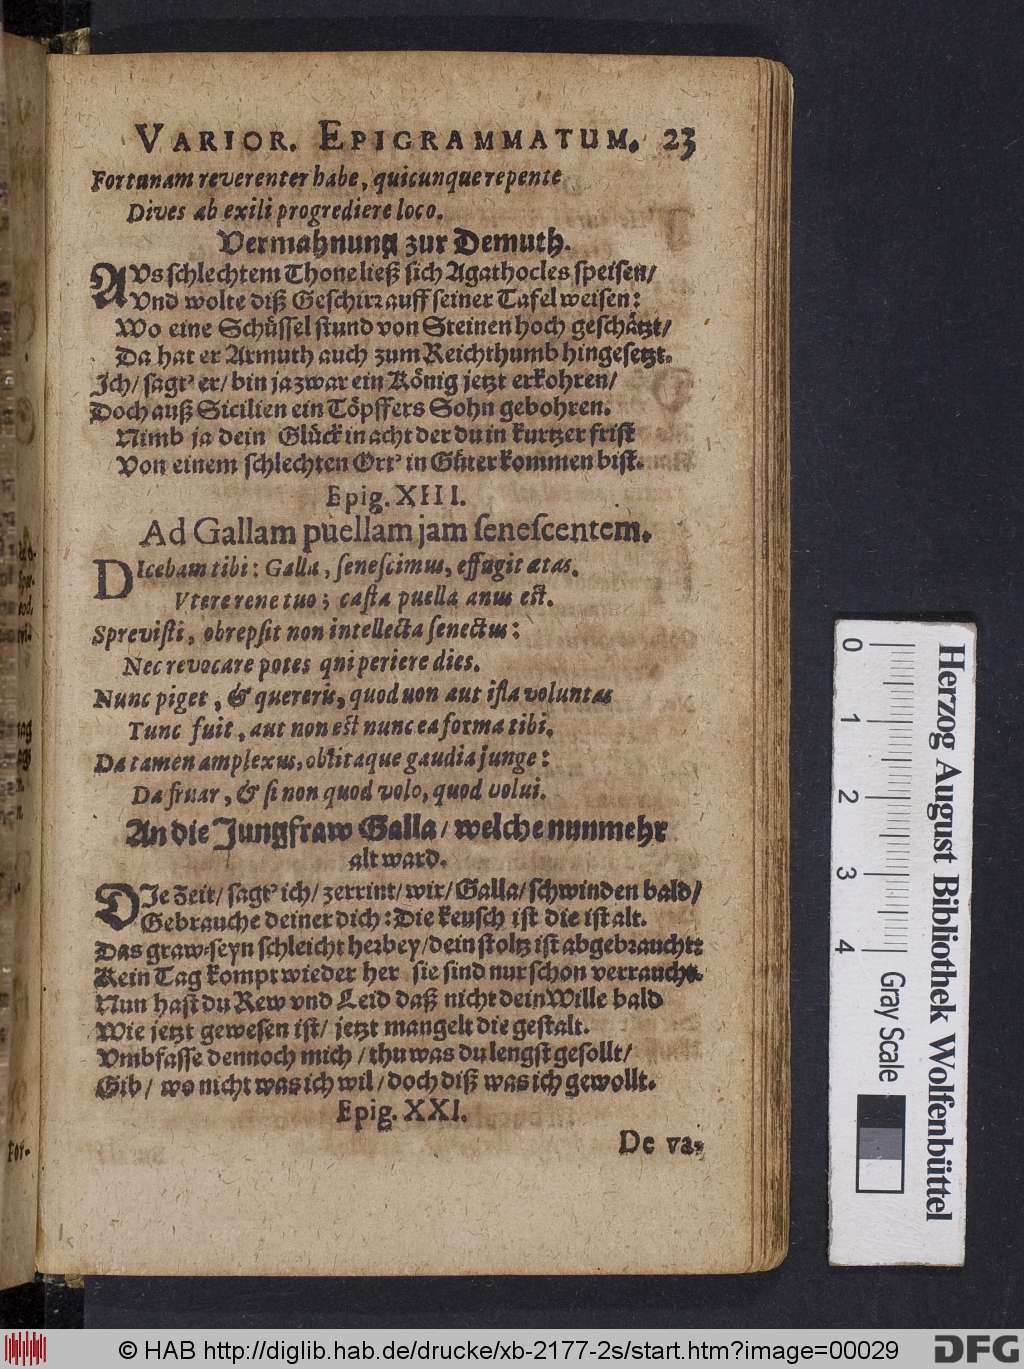 VARIOR. EPIGRAMMATUM. 23
Fortunam reverenter habe, quicunque repente
Dives ab exili progrediere loco.
Vermahnung zur Demuth.
AVs schlechtem Thone ließ sich Agathocles speisen/
Vnd wolte diß Geschirr auff seiner Tafel weisen:
Wo eine Schüssel stund von Steinen hoch geschätzt/
Da hat er Armuth auch zum Reichthumb hingesetzt.
Ich/ sagt' er/ bin ja zwar ein König jetzt erkohren/
Doch auß Sicilien ein Töpffers Sohn gebohren.
Nimb ja dein Glück in acht der du in kurtzer frist
Von einem schlechten Ort' in Güter kommen bist.
Epig. XIII.
Ad Gallam puellam jam ſeneſcentem.
DIcebam tibi: Galla, ſeneſcimus, effugit ætas.
Vtere rene tuo; caſta puella anus eſt.
Spreviſti, obrepſit non intellecta ſenectus:
Nec revocare potes qni periere dies.
Nunc piget, & quereris, quod uon aut iſta voluntas
Tunc fuit, aut non eſt nunc ea forma tibi.
Da tamen amplexus, oblitaque gaudia junge:
Da fruar, & ſi non quod volo, quod volui.
An die Jungfraw Galla/ welche nunmehr
alt ward.
DIe Zeit/ sagt' ich/ zerrint/ wir/ Galla/ schwinden bald/
Gebrauche deiner dich: Die keusch ist die ist alt.
Das graw-seyn schleicht herbey/ dein stoltz ist abgebraucht:
Kein Tag kompt wieder her sie sind nur schon verraucht.
Nun hast du Rew vnd Leid daß nicht dein Wille bald
Wie jetzt gewesen ist/ jetzt mangelt die gestalt.
Vmbfasse dennoch mich/ thu was du lengst gesollt/
Gib/ wo nicht was ich wil/ doch diß was ich gewollt.
Epig. XXI.
De va-
For-
0 1 2 3 4
Gray Scale
Herzog August Bibliothek Wolfenbüttel
© HAB http://diglib.hab.de/drucke/xb-2177-2s/start.htm?image=00029
DFG